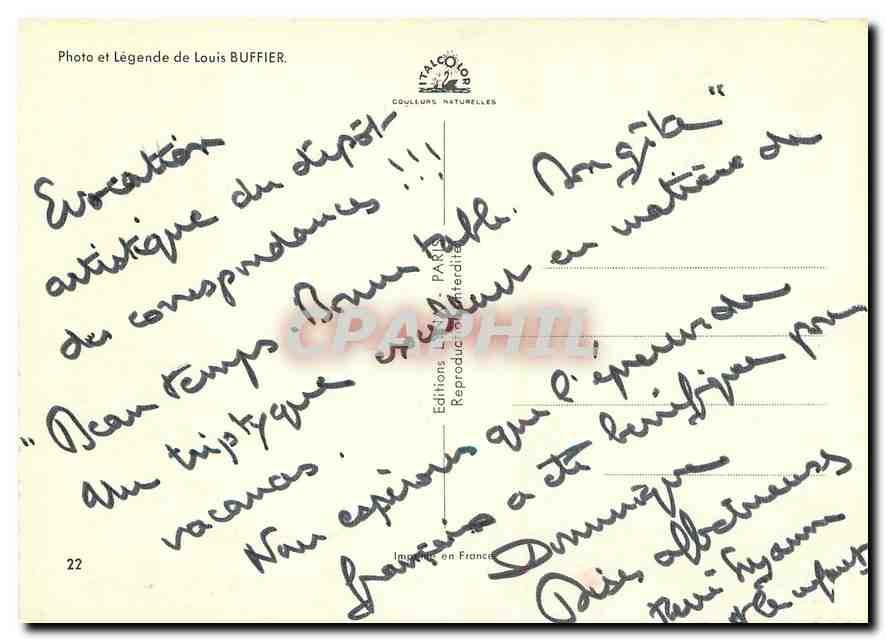 Photo et Légende de Louis BUFFIER.
VITALCOLOR
COULEURS NATURELLES
Evocation
artistique du dépôt
des correspondances !!!
"Beau temps. Bonne table. Bon gîte"
Une triptyque en matière de
vacances.
Nous espérons que l'épreuve de
français a été bénéfique pour
Dominique
Bises affectueuses
René Suzanne
et les enfants
Editions LYNA - PARIS
Reproduction interdite
CPAPHIL
22
Imprimé en France